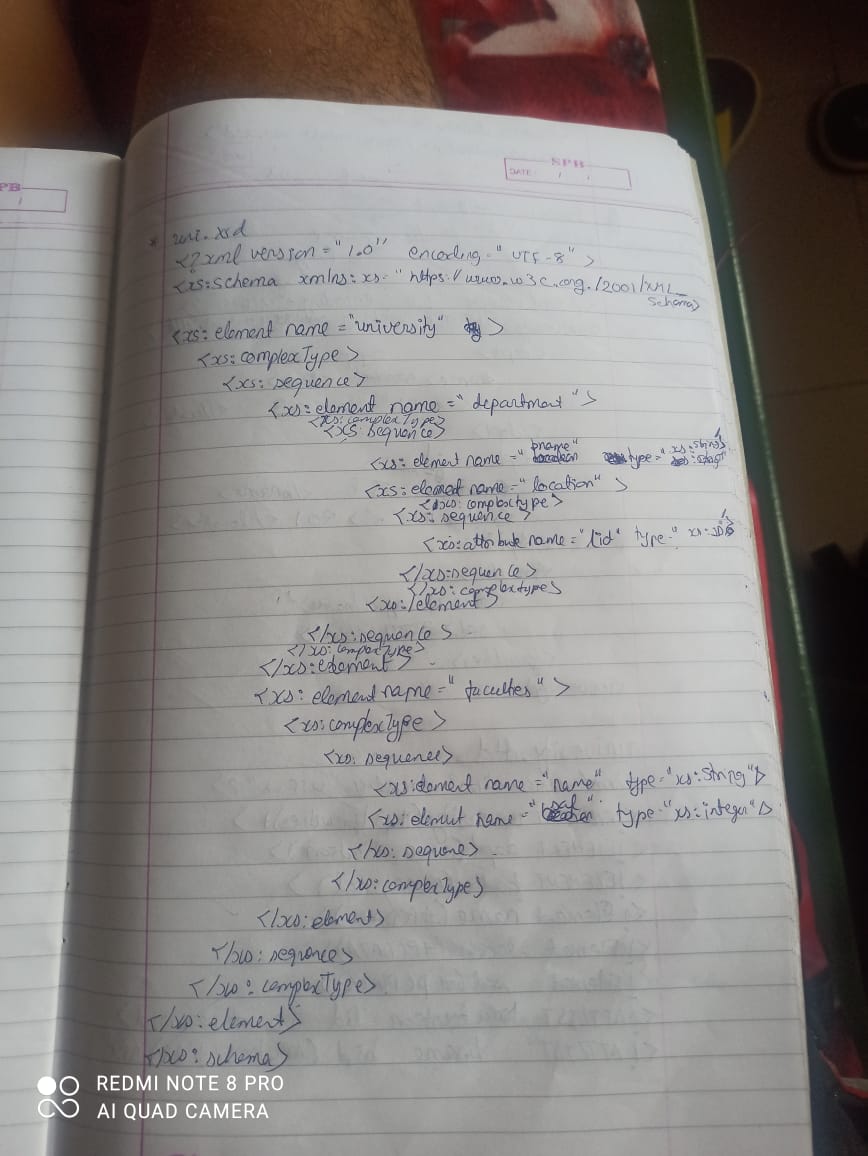 PB
SPB
DATE : / /
* uni.xsd
<?xml version = "1.0" encoding = "UTF-8" >
<xs:schema xmlns:xs = "https://www.w3c.org./2001/XML_
schema>
<xs:element name = "university" >
<xs:complexType>
<xs:sequence>
<xs:element name = "department">
<xs:complexType>
<xs:sequence>
<xs:element name = "pname" type="xs:string">
<xs:element name = "location" >
<xs:complextype>
<xs:sequence>
<xs:attribute name = "lid" type = "xs:ID">
</xs:sequence>
</xs:complextype>
<xs:/element>
</xs:sequence>
</xs:compexType>
</xs:element>
<xs:element name = "faculties" >
<xs:complexType>
<xs:sequence>
<xs:element name = "name" type = "xs:string">
<xs:element name = "sal" type = "xs:integer">
</xs:sequene>
</xs:complexType>
</xs:element>
</xs:seqence>
</xs:complexType>
</xs:element>
</xs:schema>
REDMI NOTE 8 PRO
AI QUAD CAMERA